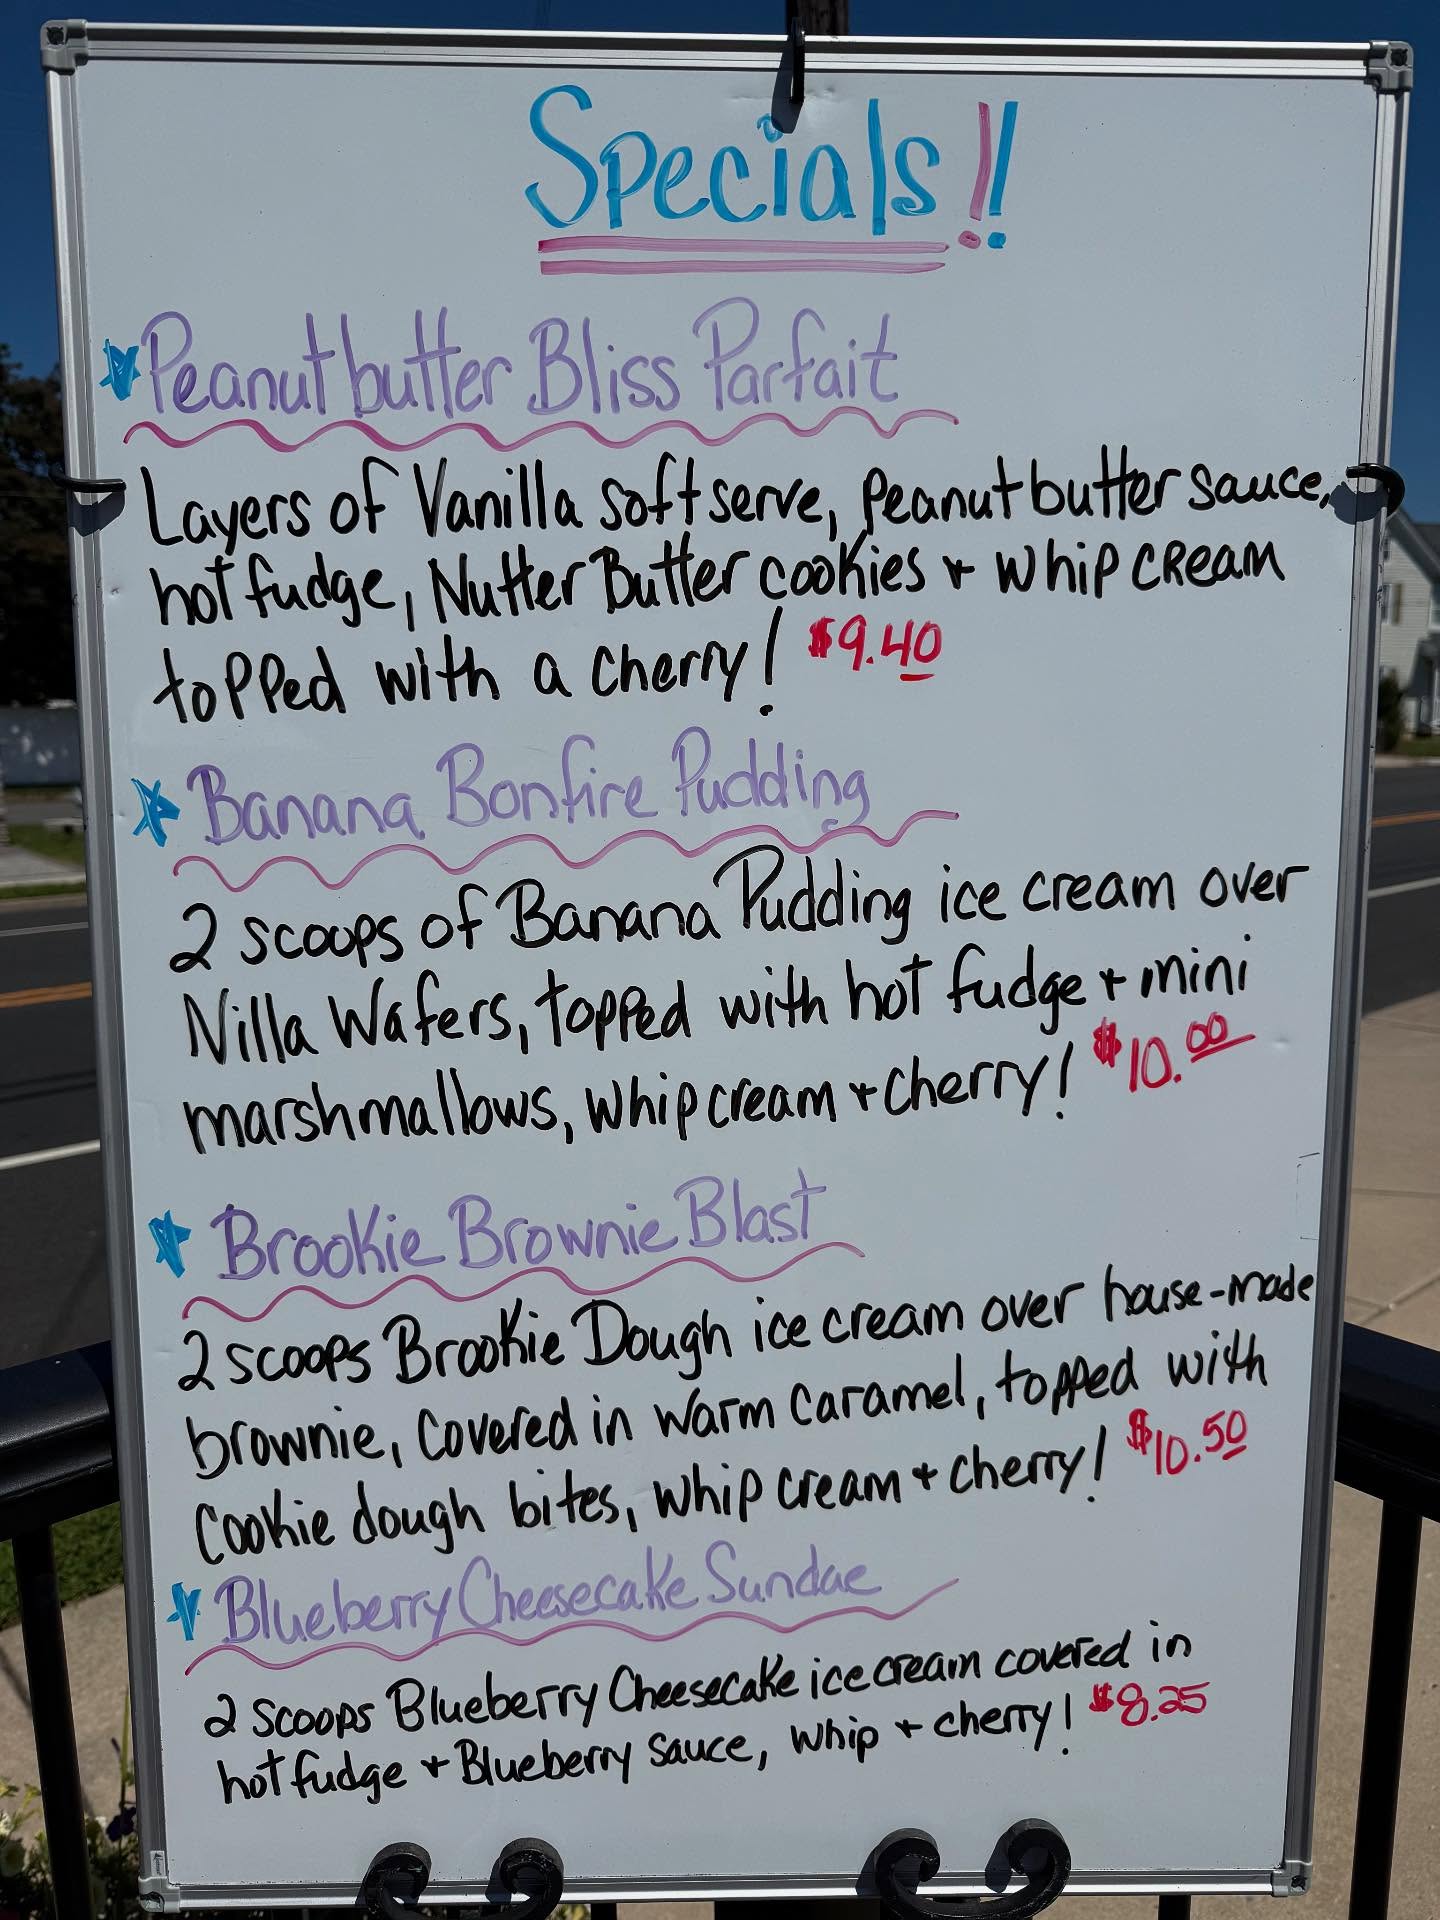 Specials!!
Peanut butter Bliss Parfait
Layers of Vanilla soft serve, peanut butter sauce,
hot fudge, Nutter Butter cookies + whip cream
topped with a cherry! $9.40
Banana Bonfire Pudding
2 scoops of Banana Pudding ice cream over
Nilla Wafers, topped with hot fudge + mini
marshmallows, whip cream + cherry! $10.00
Brookie Brownie Blast
2 scoops Brookie Dough ice cream over house-made
brownie, covered in warm caramel, topped with
cookie dough bites, whip cream + cherry! $10.50
Blueberry Cheesecake Sundae
2 scoops Blueberry Cheesecake ice cream covered in
hot fudge + Blueberry sauce, whip + cherry! $8.25